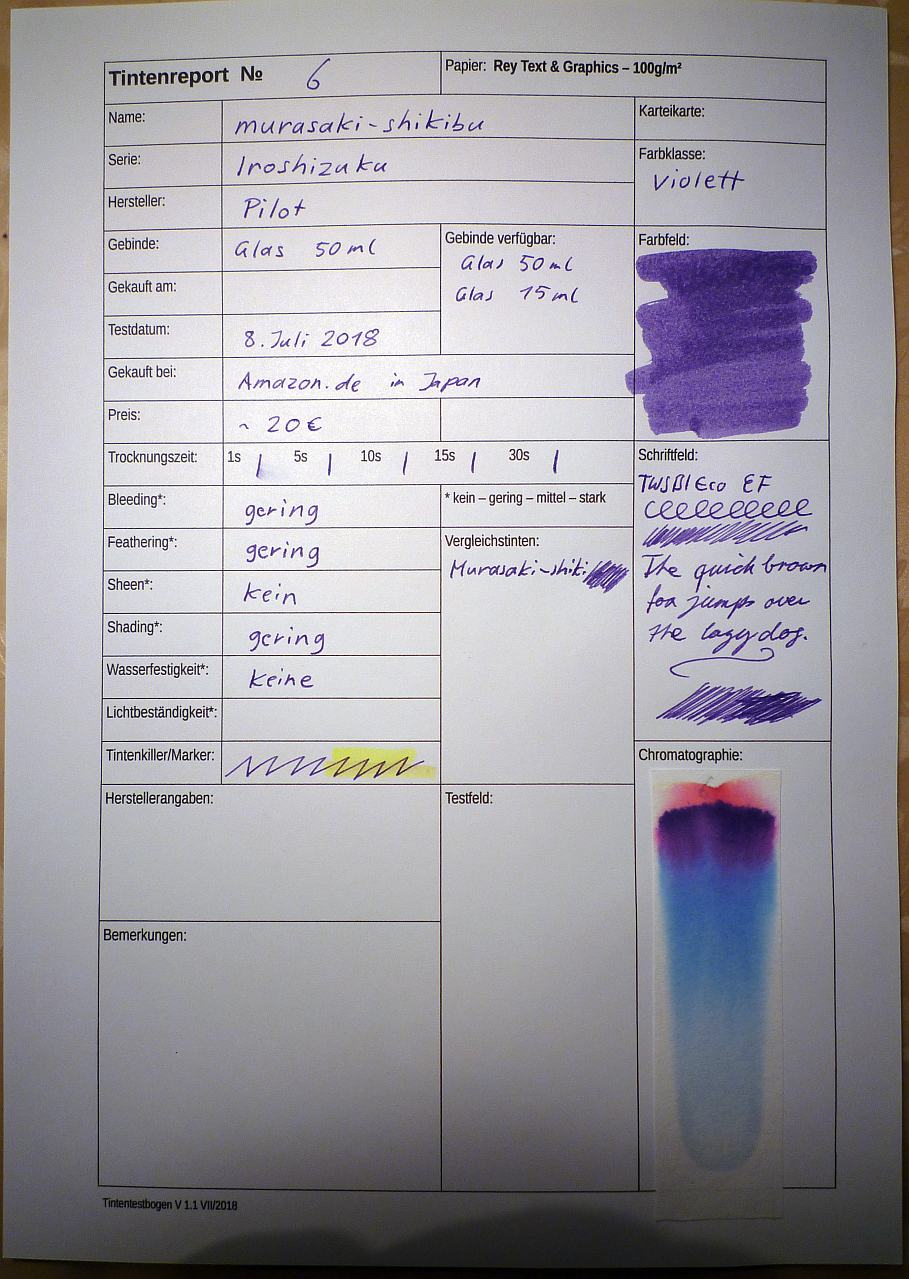 Tintenreport № 6
Papier: Rey Text & Graphics – 100g/m²
Name: murasaki-shikibu
Karteikarte:
Serie: Iroshizuku
Farbklasse:
Violett
Hersteller: Pilot
Gebinde: Glas 50 ml
Gebinde verfügbar:
Glas 50 ml
Glas 15 ml
Farbfeld:
Gekauft am:
Testdatum: 8. Juli 2018
Gekauft bei: Amazon.de in Japan
Preis: ~ 20 €
Trocknungszeit: 1s 5s 10s 15s 30s
Schriftfeld:
TWSBI Eco EF
The quick brown
fox jumps over
the lazy dog.
Bleeding*: gering
* kein – gering – mittel – stark
Feathering*: gering
Vergleichstinten:
Murasaki-shiki
Sheen*: kein
Shading*: gering
Wasserfestigkeit*: keine
Lichtbeständigkeit*:
Tintenkiller/Marker:
Chromatographie:
Herstellerangaben:
Testfeld:
Bemerkungen:
Tintentestbogen V 1.1 VII/2018